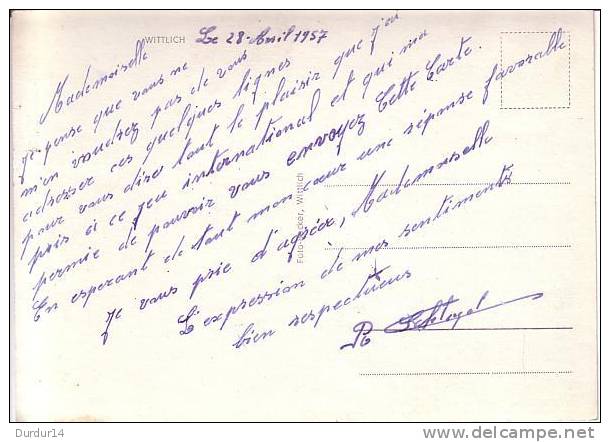 WITTLICH Le 28 Avril 1957
Mademoiselle
Je pense que vous ne
m'en voudrez pas de vous
adresser ces quelques lignes
pour vous dire tout le plaisir que j'ai
pris à ce jeu international et qui m'a
permie de pouvoir vous envoyez Cette Carte.
En esperant de tout mon cœur une réponse favorable
Je vous prie d'agréer, Mademoiselle
L'expression de mes sentiments
bien respectueux
R
Foto Becker, Wittlich
© Durdur14
www.delcampe.net